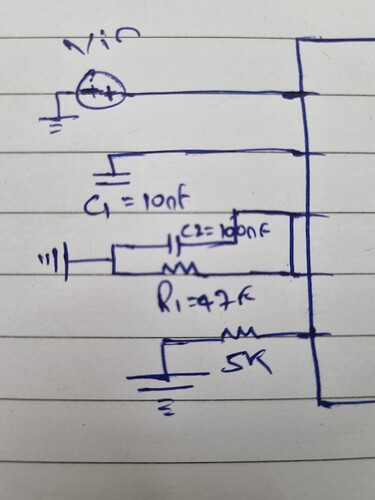 Vin
C1 = 10nF
C2=100nF
R1=47K
5K